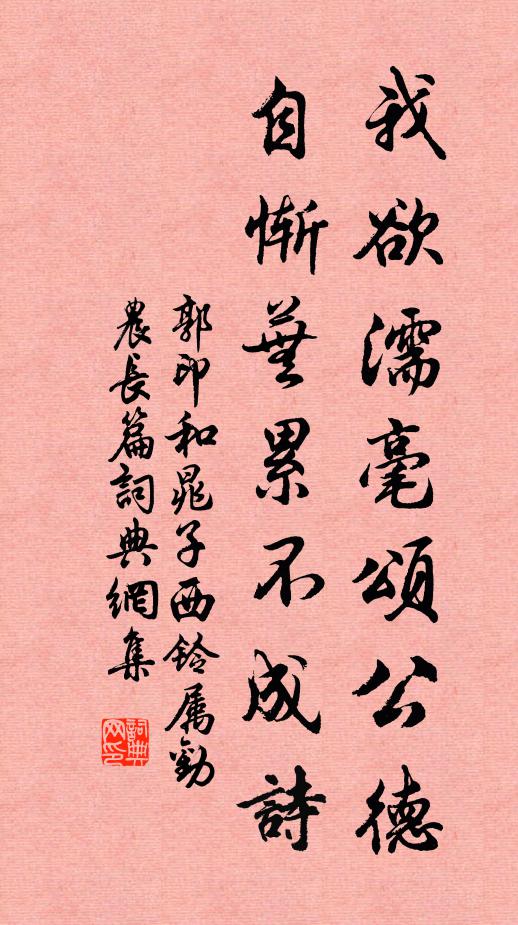 我欲濡毫頌公德
自慚蕪累不成詩
郭印和晁子西鈴属勸
農長篇詞典網集
詞典
网印